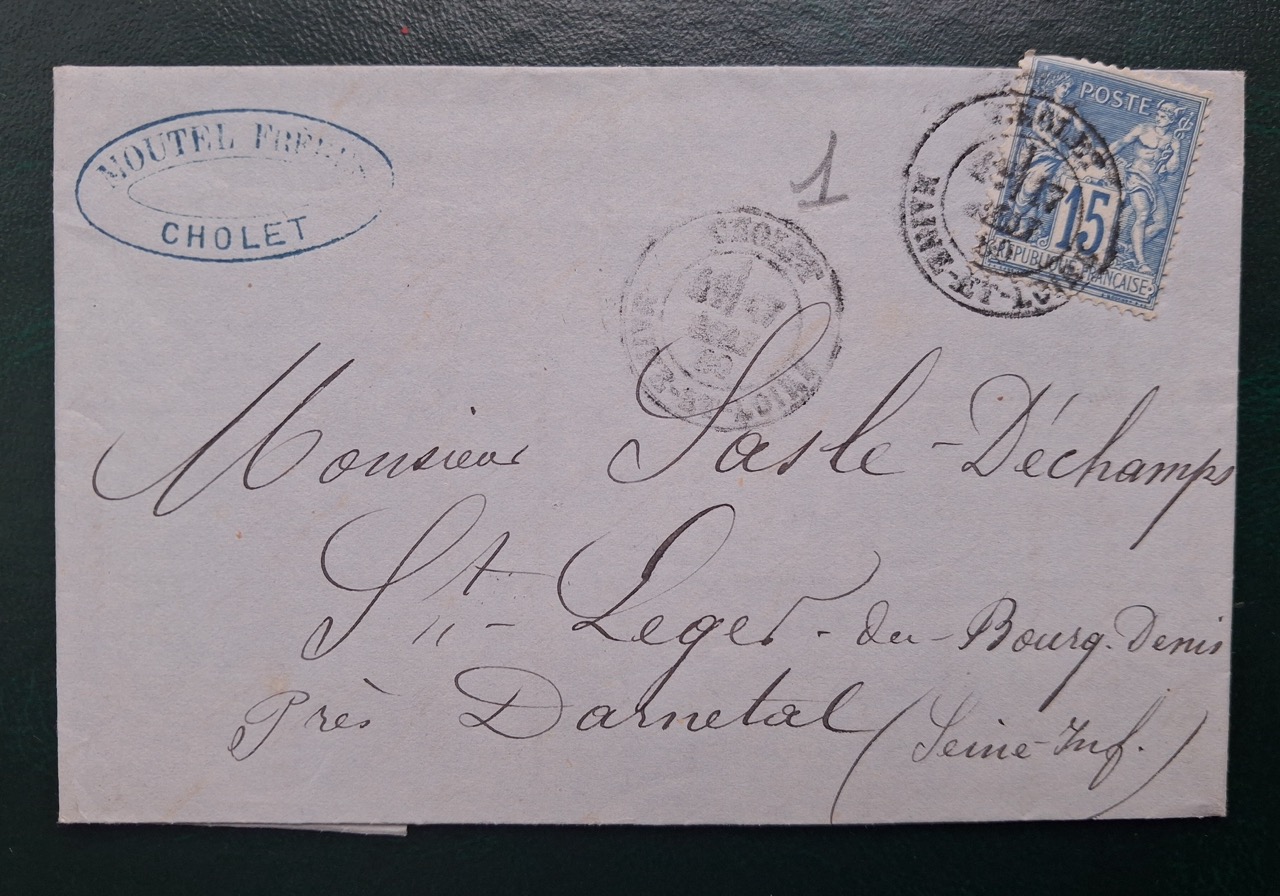 MOUTEL FRÈRES
CHOLET
1
POSTE
15
REPUBLIQUE FRANÇAISE
CHOLET
17
MAINE-ET-LOIRE
CHOLET
MAINE-ET-LOIRE
Monsieur Sasle-Déchamps
St- Leger-du-Bourg-Denis
Près Darnetal (Seine-Inf.)